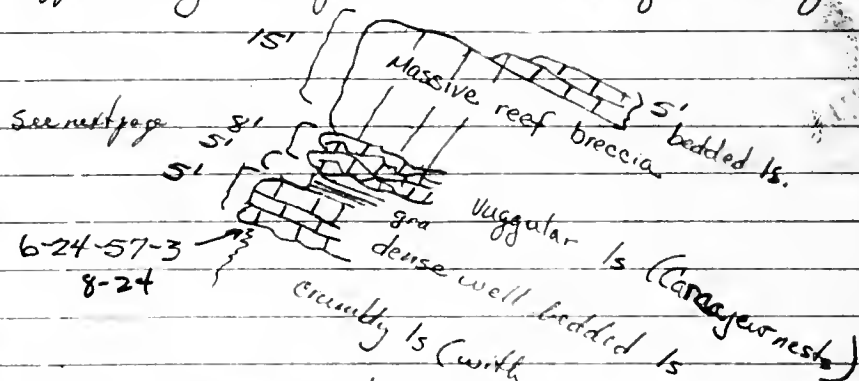 15'
Massive reef breccia
5'
bedded ls.
See next page
8'
5'
5'
Vuggular ls (
nests)
dense well bedded ls
6-24-57-3
8-24
crumbly ls (with